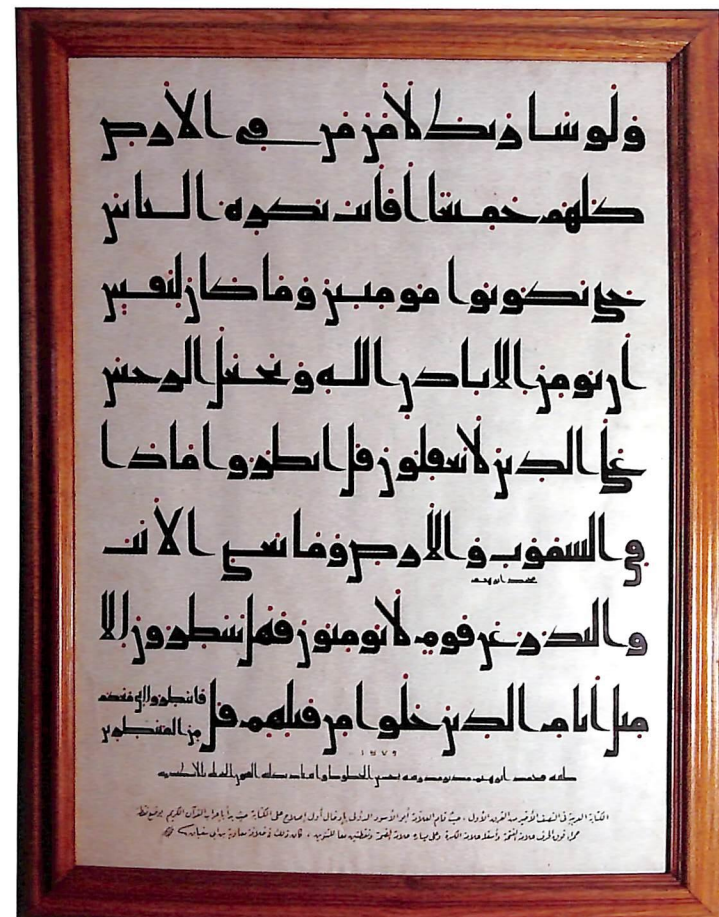 ولو شا ربك لامن من في الارض
كلهم جميعا افانت تكره الناس
حتى يكونوا مومنين وما كان لنفس
ان تومن الا باذن الله ويجعل الرجس
على الذين لا يعقلون قل انظروا ماذا
في السموت والارض وما تغني الايت
محمد ابراهيم
والنذر عن قوم لا يومنون فهل ينتظرون الا
مثل ايام الذين خلوا من قبلهم قل فانتظروا اني معكم من المنتظرين
كتبه محمد ابراهيم مدير مدرسة تحسين الخطوط واستاذ بكلية الفنون الجميلة بالاسكندرية
الكتابة العربية في النصف الأخير من القرن الأول ، حيث قام العلامة أبو الأسود الدؤلي بإدخال أول إصلاح على الكتابة حيث بدأ بإعراب القرآن الكريم بوضع نقط
حمراء فوق الحرف علامة الفتحة وأسفله علامة الكسرة وعلى يساره علامة الضمة ونقطتين معا للتنوين ، كان ذلك في خلافة معاوية بن أبي سفيان